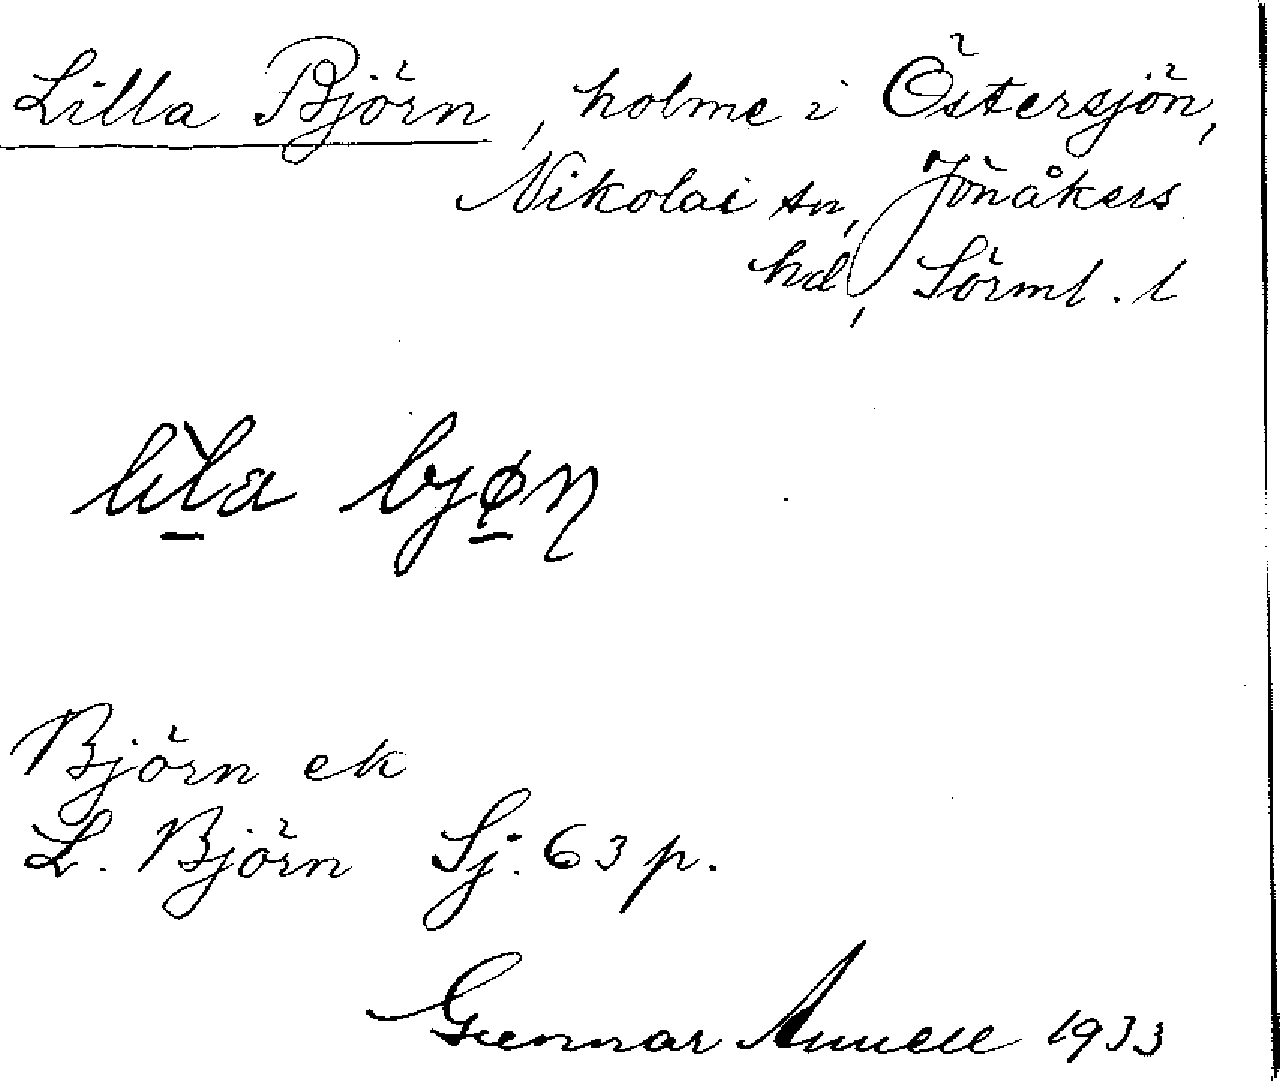 Lilla Björn, holme i Östersjön,
Nikolai sn, Jönåkers
hd, Sörml. l
lìla bjøɳ
Björn ek
L. Björn Sj. 63 p.
Gunnar Annell 1933